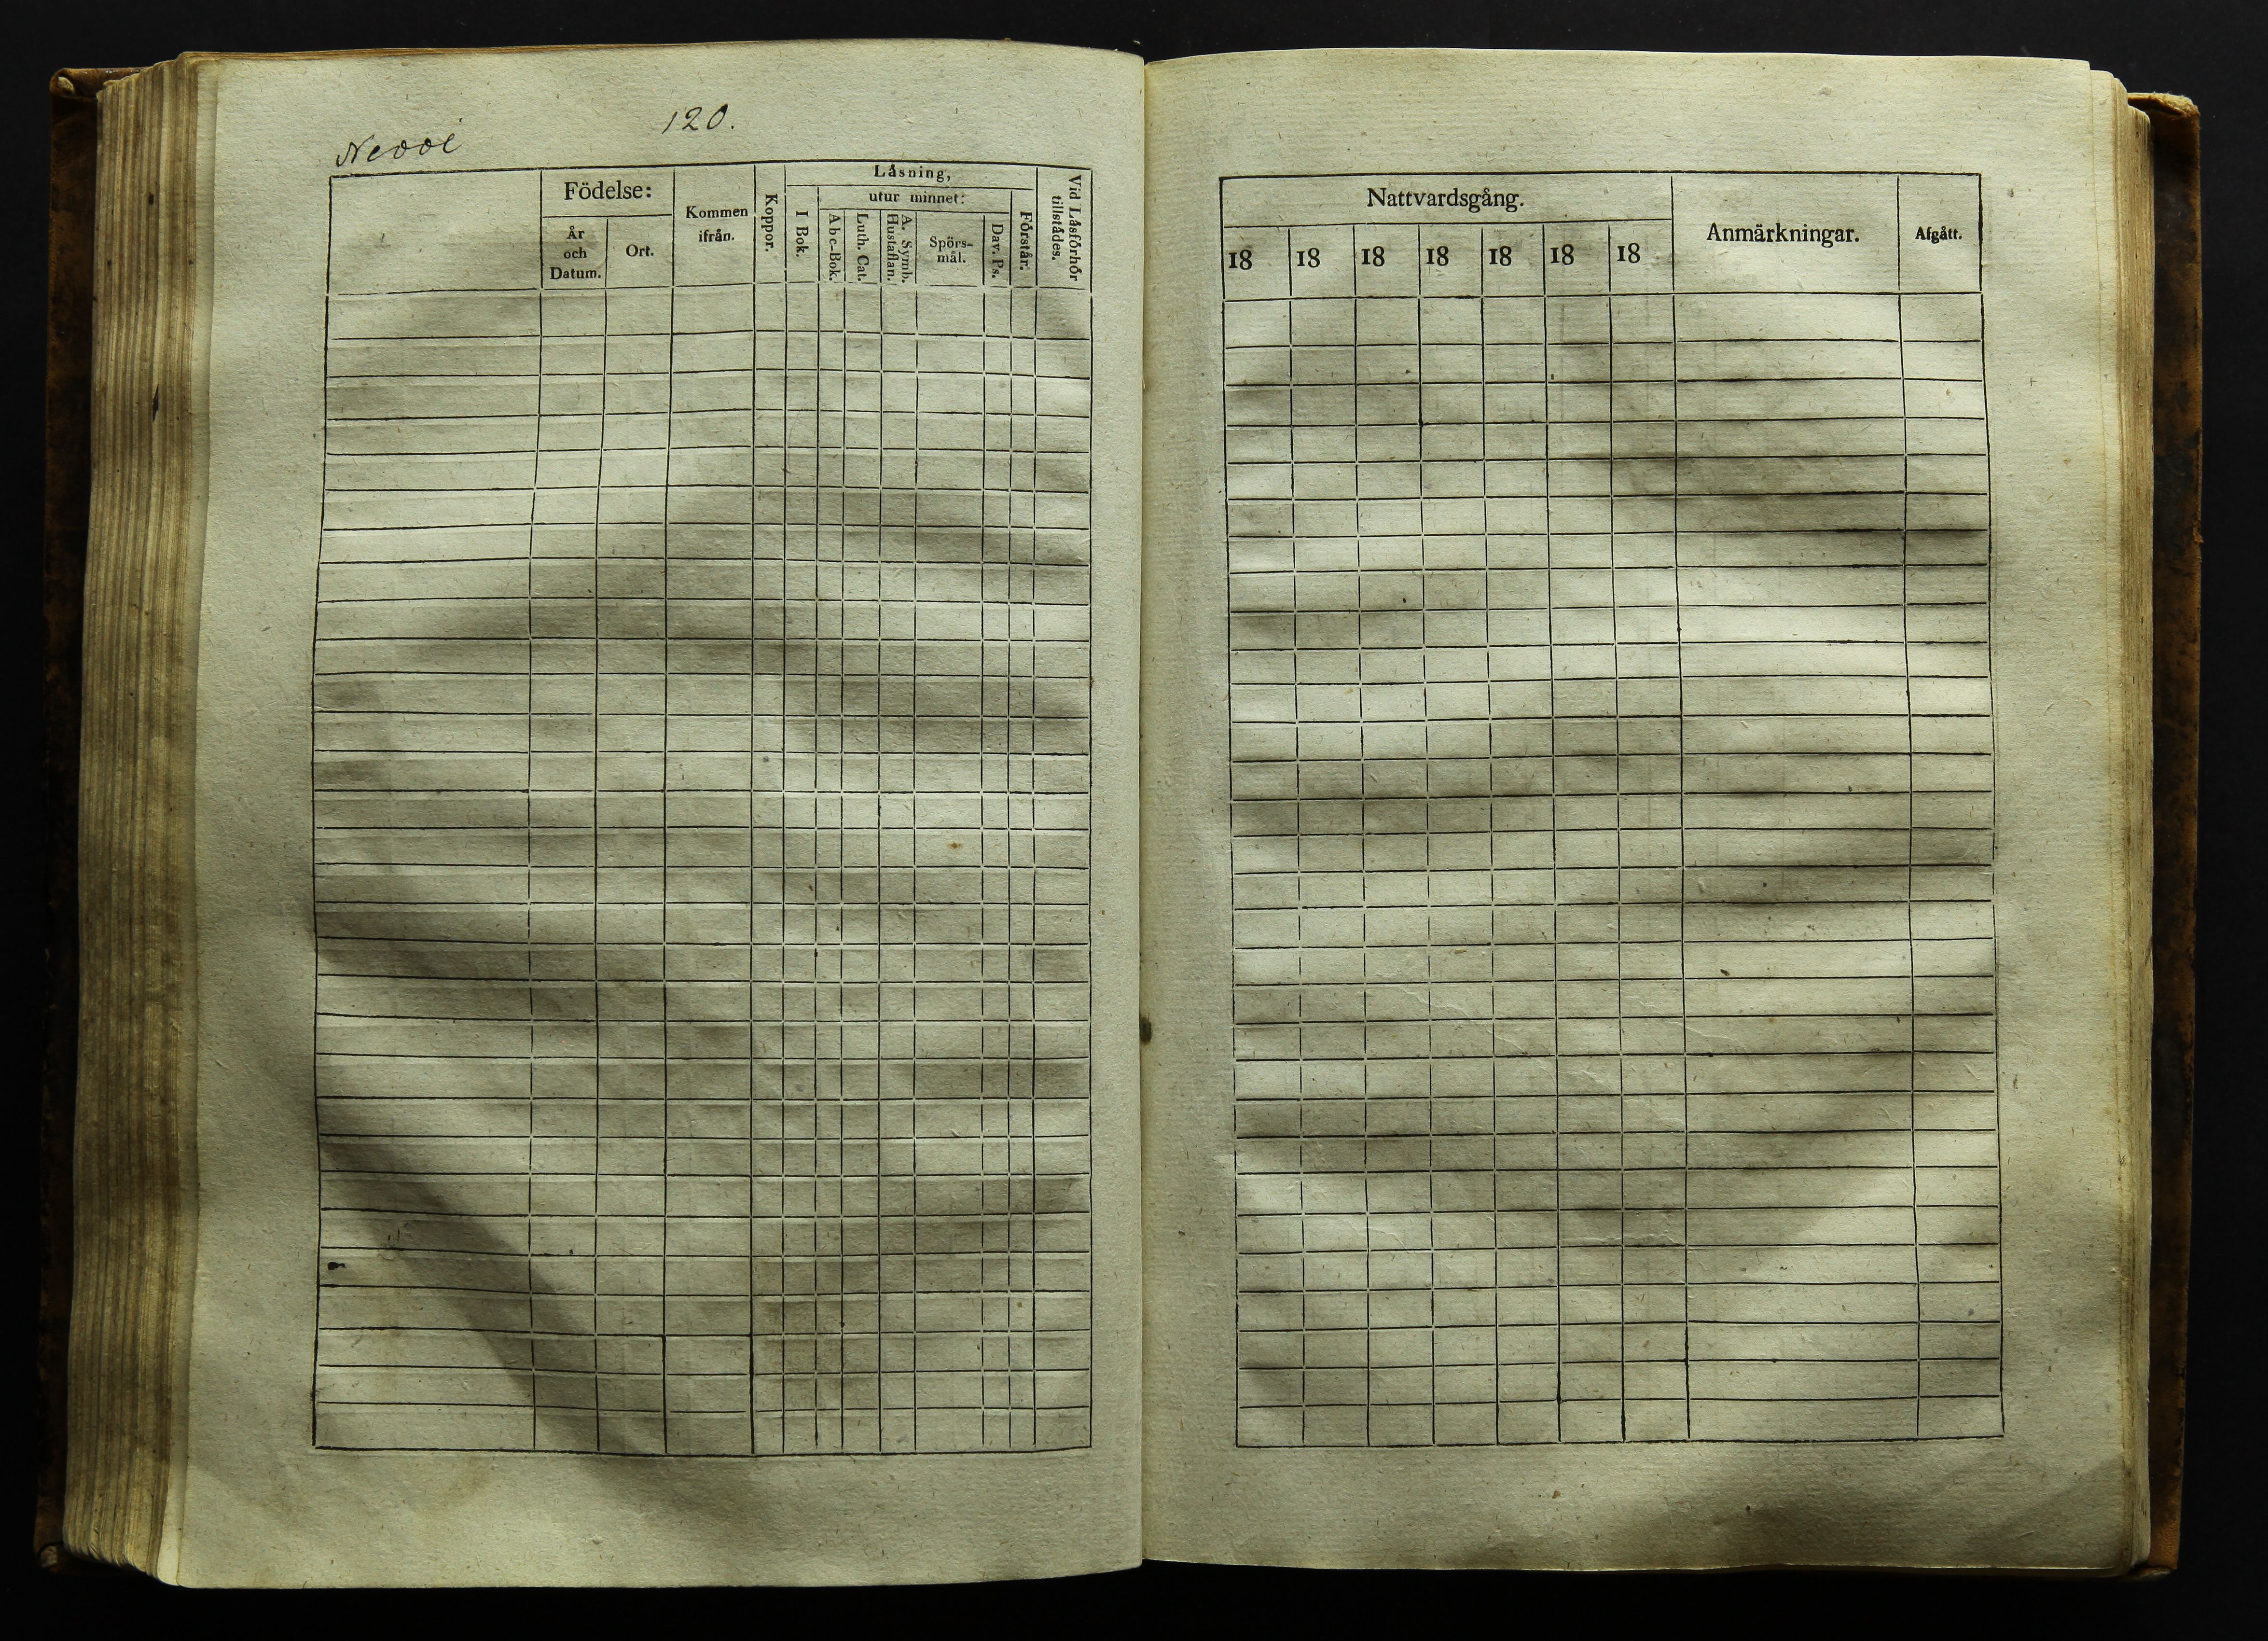 120.
Nevoi
Födelse:
År
och
Datum.
Ort.
Kommen
ifrån.
Koppor.
Låsning,
I Bok.
utur minnet:
Abc-Bok.
Luth. Cat.
A. Symb.
Hustaflan.
Spörs-
mål.
Dav. Ps.
Förstår.
Vid Låsförhör
tillstådes.
Nattvardsgång.
18 18 18 18 18 18 18
Anmärkningar.
Afgått.